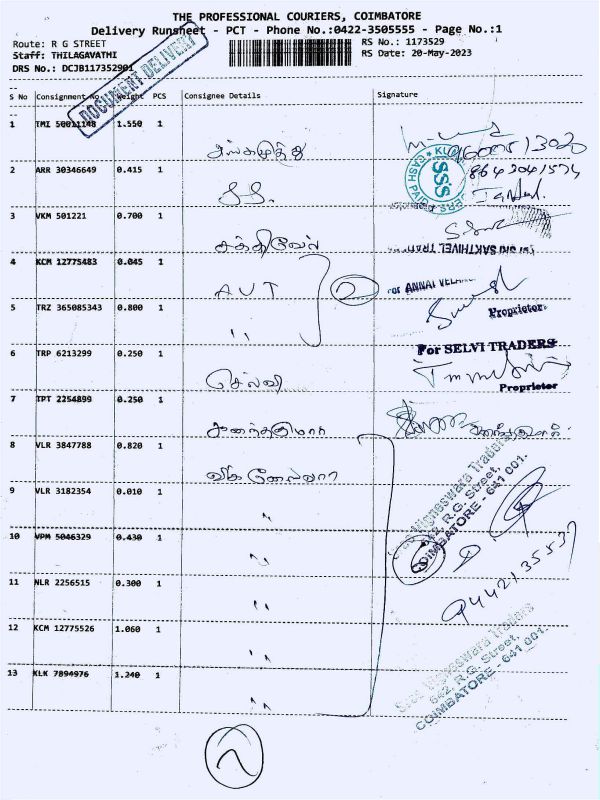 THE PROFESSIONAL COURIERS, COIMBATORE
Delivery Runsheet - PCT - Phone No.:0422-3505555 - Page No.:1
Route: R G STREET
RS No.: 1173529
Staff: THILAGAVATHI
RS Date: 20-May-2023
DRS No.: DCJB117352901
DOCUMENT DELIVERY
S No Consignment No Weight PCS Consignee Details Signature
1 TMI 50011148 1.550 1
2 ARR 30346649 0.415 1 S.S. 8643041574
CASH PAID SSS
3 VKM 501221 0.700 1 சக்திவேல்
SRI SAKTHIVEL TRAD
4 KCM 12775483 0.045 1 AVT 2 For ANNAI VELAN
5 TRZ 365085343 0.800 1 " Proprietor
For SELVI TRADERS
6 TRP 6213299 0.250 1 செல்வி
Proprietor
7 TPT 2254899 0.250 1 ஆனந்தகுமார்
8 VLR 3847788 0.820 1
Sree Vigneswara Traders
542, R.G. Street,
COIMBATORE - 641 001.
9 VLR 3182354 0.010 1 "
10 VPM 5046329 0.430 1 "
11 NLR 2256515 0.300 1 " 9442135537
12 KCM 12775526 1.060 1 "
Sree Vigneswara Traders
542, R.G. Street,
COIMBATORE - 641 001.
13 KLK 7894976 1.240 1 "